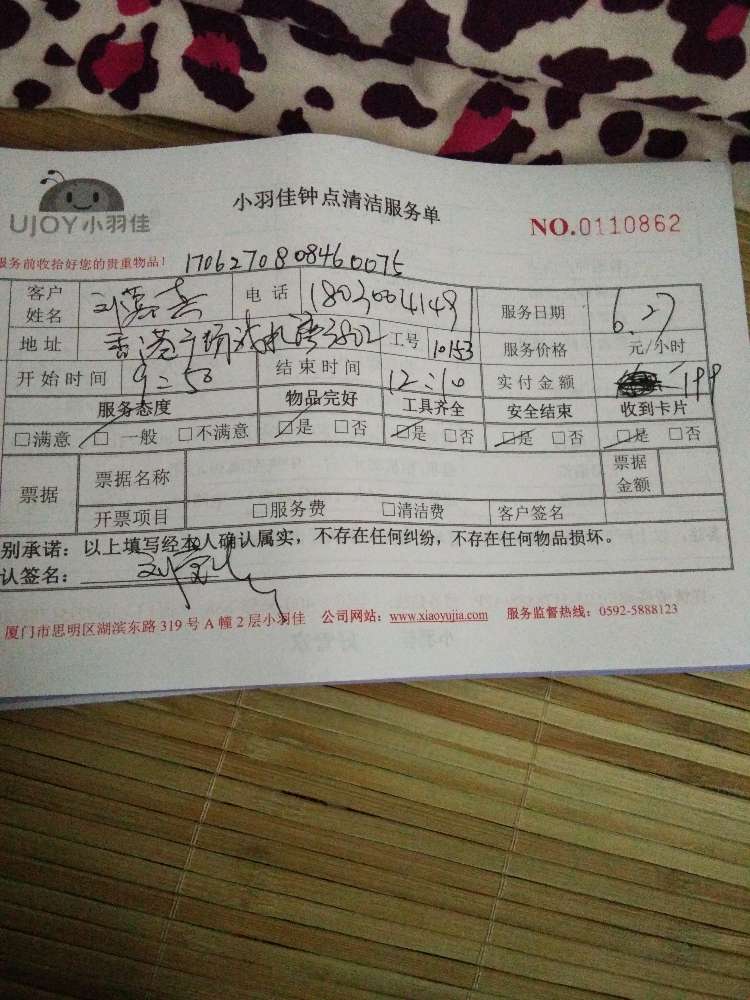 UJOY小羽佳
小羽佳钟点清洁服务单
NO.0110862
服务前收拾好您的贵重物品!
1706270808460075
客户姓名 电话 18030004149 服务日期 6.27
地址 香港广场 3802 工号 10153 服务价格 元/小时
开始时间 9:50 结束时间 12:10 实付金额
服务态度 物品完好 工具齐全 安全结束 收到卡片
□满意 □一般 □不满意 □是 □否 □是 □否 □是 □否 □是 □否
票据 票据名称 票据金额
开票项目 □服务费 □清洁费 客户签名
别承诺:以上填写经本人确认属实,不存在任何纠纷,不存在任何物品损坏。
认签名:
厦门市思明区湖滨东路 319 号 A 幢 2 层小羽佳 公司网站:www.xiaoyujia.com 服务监督热线:0592-5888123